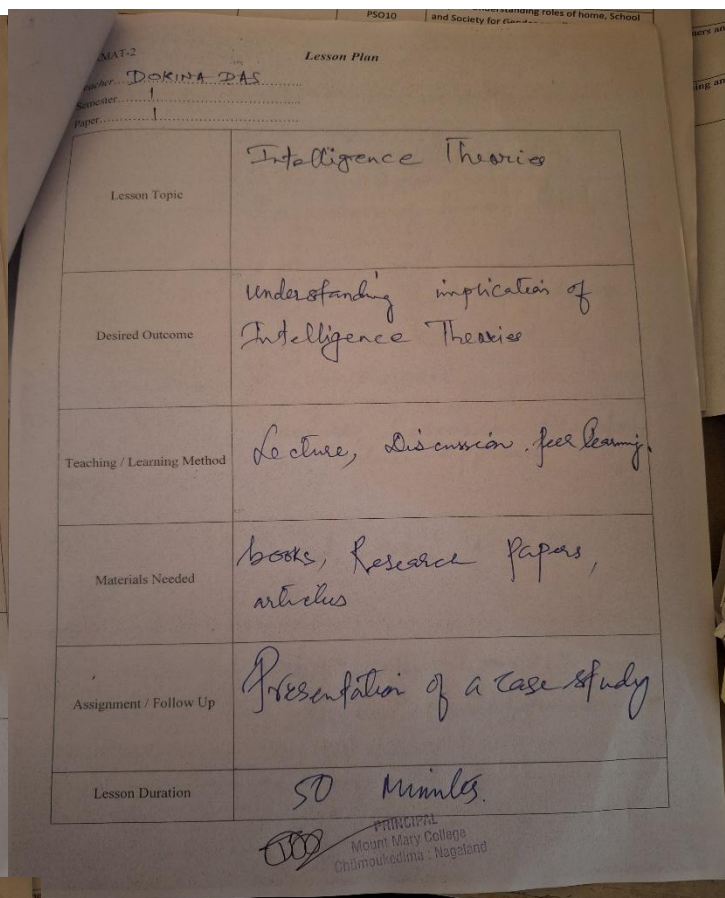 PSO10
standing roles of home, School
and Society for
MAT-2
Lesson Plan
acher... DORINA DAS
Semester... 1
Paper... 1
Lesson Topic
Intelligence Theories
Desired Outcome
Understanding implication of
Intelligence Theories
Teaching / Learning Method
Lecture, Discussion. peer learning.
Materials Needed
books, Research Papers,
articlus
Assignment / Follow Up
Presentation of a case study
Lesson Duration
50 Minutes.
PRINCIPAL
Mount Mary College
Chumoukedima : Nagaland